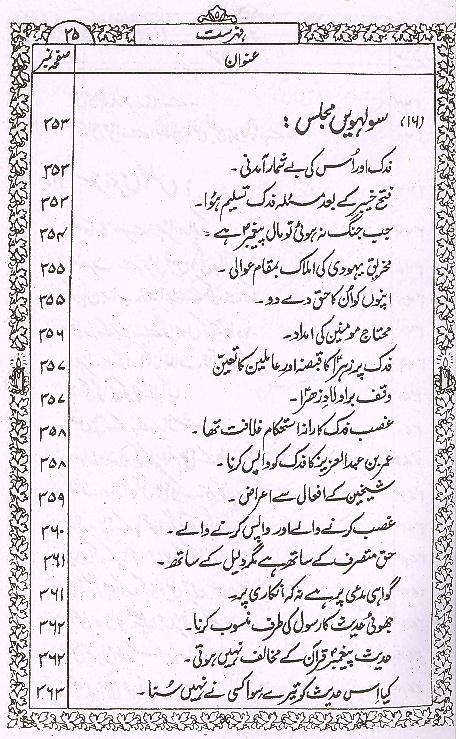 ۲۵ فہرست
عنوان صفحہ نمبر
(۱۶) سولہویں مجلس : ۳۵۳
فدک اور اُس کی بے شمار آمدنی ۔ ۳۵۳
فتح خیبر کے بعد مسئلہ فدک تسلیم ہوا ۔ ۳۵۳
جب جنگ نہ ہوئی تو مال پیغمبرؐ ہے ۔ ۳۵۴
مخریق یہودی کی املاک بمقام عوالی ۔ ۳۵۵
اپنوں کو اُن کا حق دے دو ۔ ۳۵۵
محتاج مومنین کی امداد ۔ ۳۵۶
فدک پر زہراؑ کا قبضہ اور عاملین کا تعین ۳۵۷
وقف براولادِ زھراؑ ۔ ۳۵۷
غصب فدک کا راز استحکام خلافت تھا ۔ ۳۵۸
عمر بن عبد العزیز کا فدک کو واپس کرنا ۔ ۳۵۸
شیخین کے افعال سے اعراض ۔ ۳۵۹
غصب کرنے والے اور واپس کرنے والے ۔ ۳۶۰
حق متصرف کے ساتھ ہے مگر دلیل کے ساتھ ۔ ۳۶۱
گواہی مدعی پر ہے نہ کہ انکاری پر ۔ ۳۶۱
جھوٹی حدیث کا رسولؐ کی طرف منسوب کرنا ۔ ۳۶۲
حدیث پیغمبرؐ قرآن کے مخالف نہیں ہوتی ۔ ۳۶۲
کیا اِس حدیث کو تیرے سوا کسی نے نہیں سُنا ۔ ۳۶۳